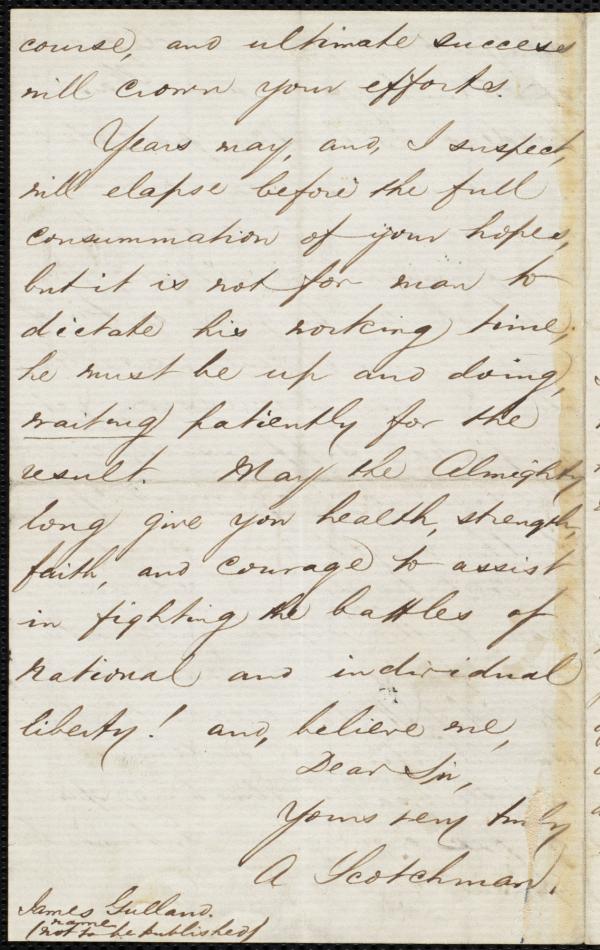 course, and ultimate success
will crown your efforts.
Years may, and, I suspect,
will elapse before the full
consummation of your hopes,
but it is not for man to
dictate his working time;
he must be up and doing,
waiting patiently for the
result. May the Almighty
long give you health, strength,
faith, and courage to assist
in fighting the battles of
national and individual
liberty! and, believe me,
Dear Sir,
Yours very truly
A Scotchman.
James Gulland.
name
(not to be published)